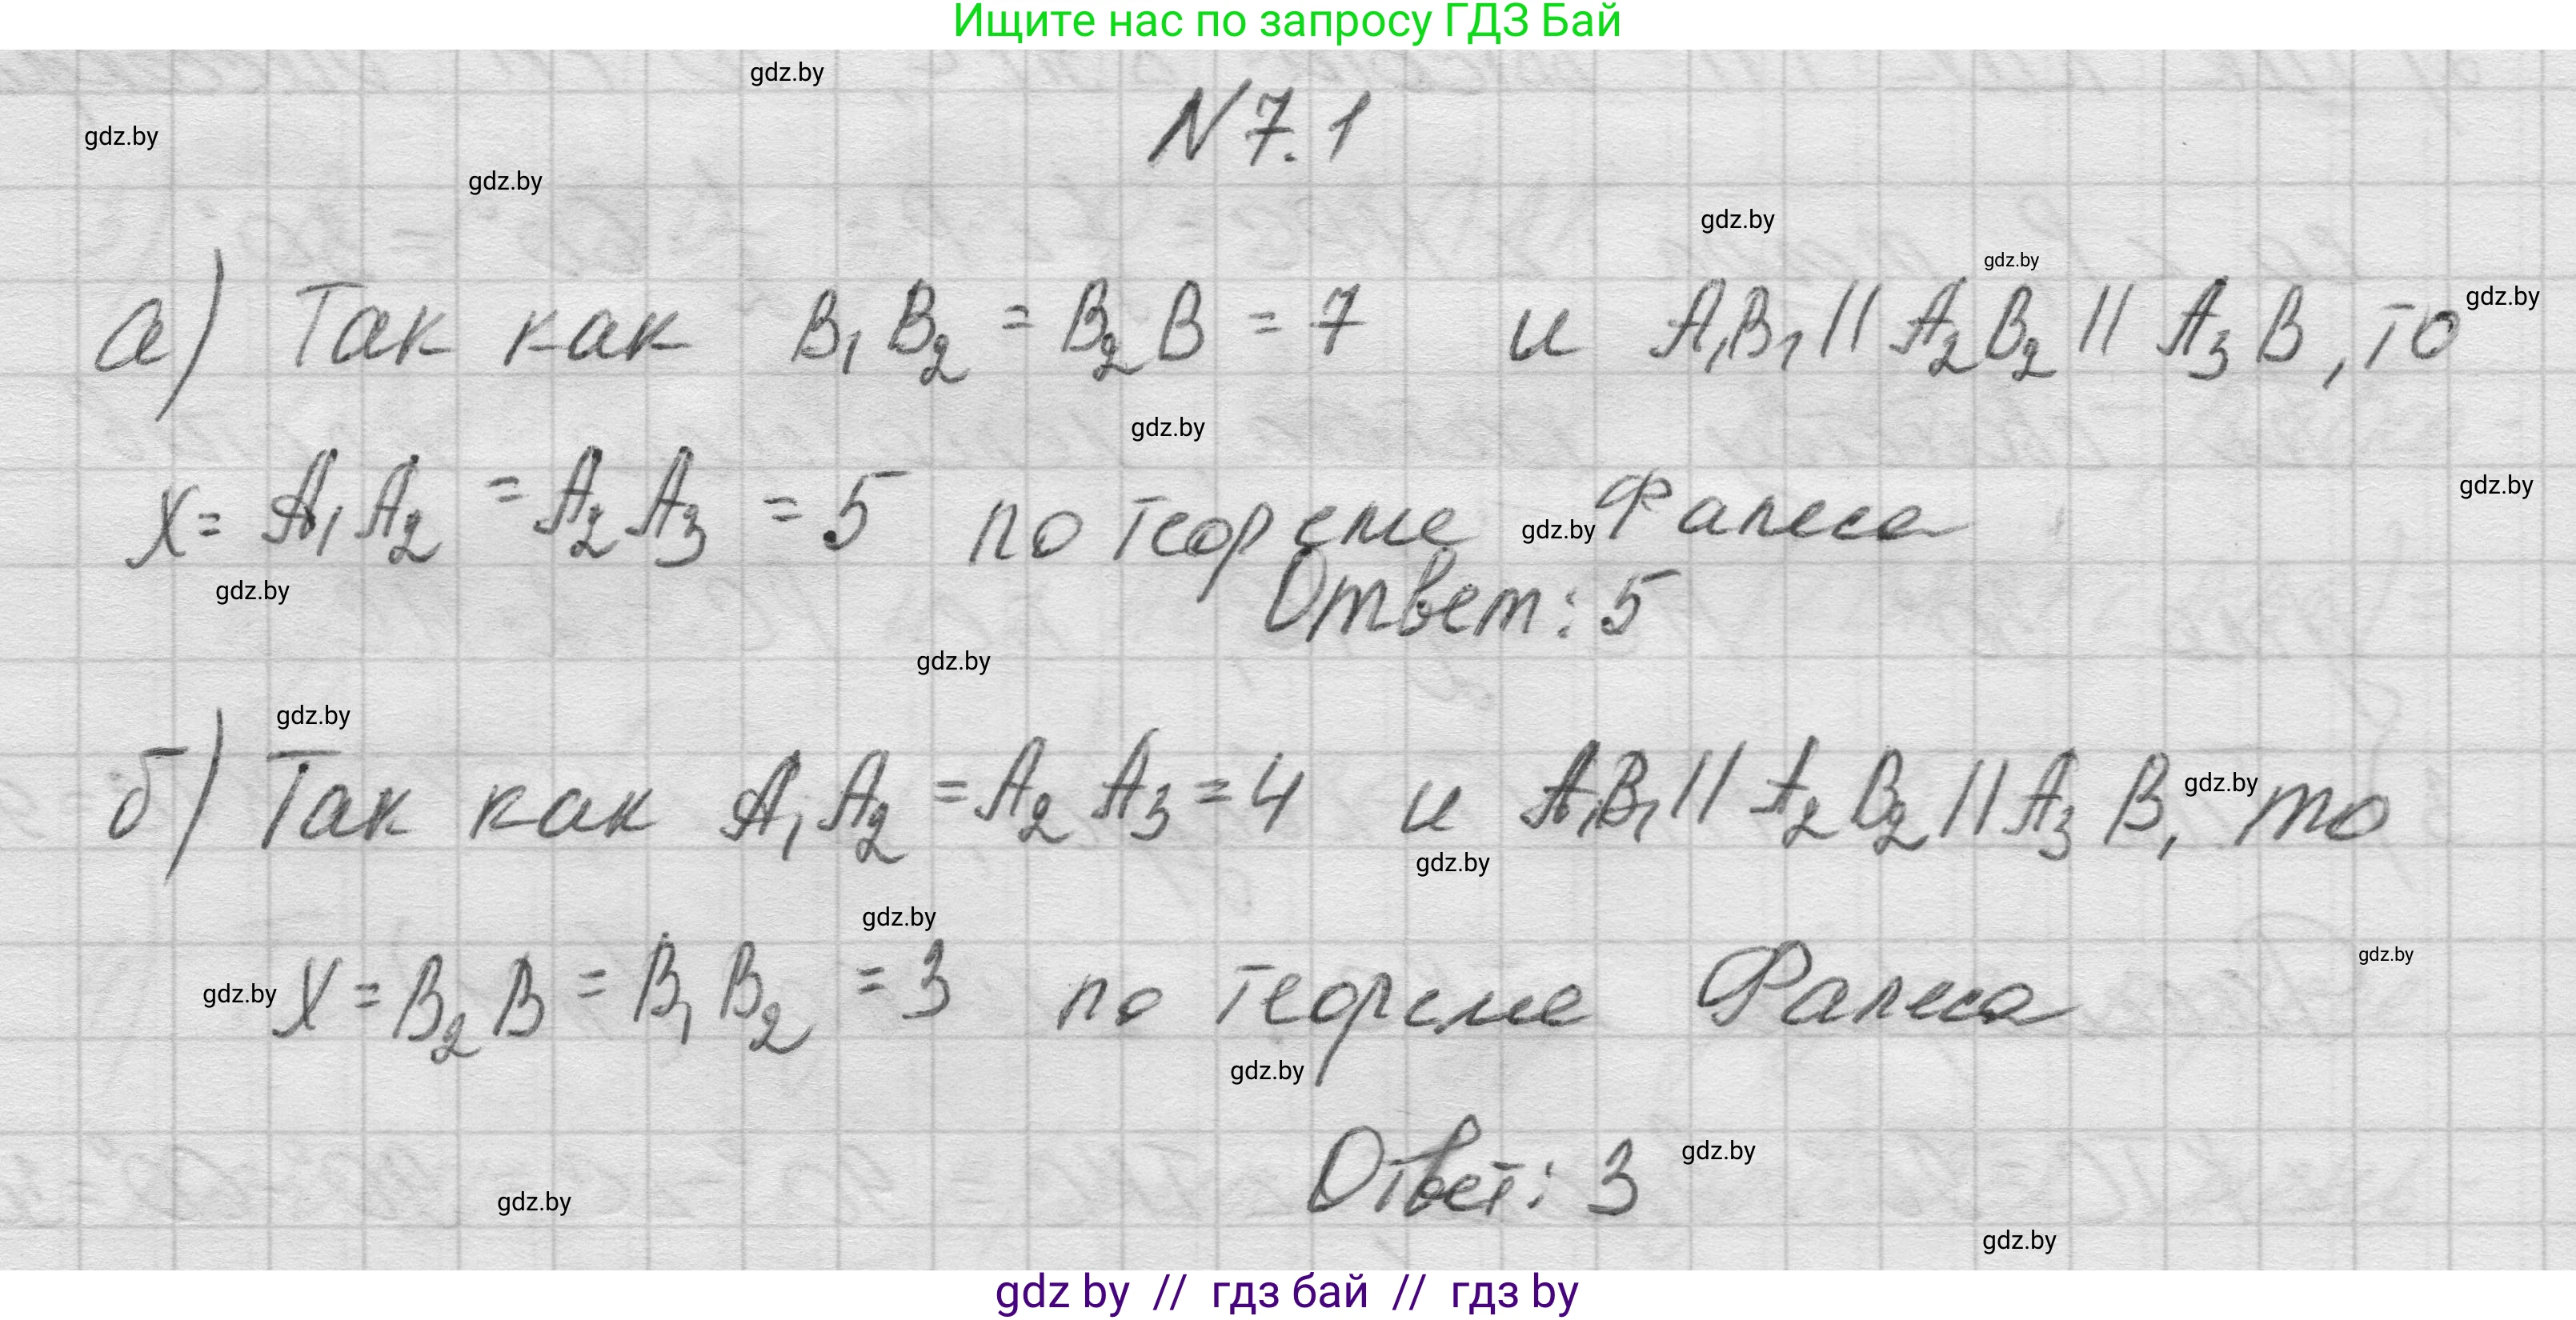 Ищите нас по запросу ГДЗ Бай
gdz.by
N 7.1
gdz.by
gdz.by
gdz.by
gdz.by
а) Так как B₁B₂ = B₂B = 7 и A₁B₁ // A₂B₂ // A₃B, то
gdz.by
gdz.by
x = A₁A₂ = A₂A₃ = 5 по теореме Фалеса
gdz.by
gdz.by
gdz.by
Ответ: 5
gdz.by
gdz.by
б) Так как A₁A₂ = A₂A₃ = 4 и A₁B₁ // A₂B₂ // A₃B, то
gdz.by
gdz.by
gdz.by
gdz.by
gdz.by
x = B₂B = B₁B₂ = 3 по теореме Фалеса
gdz.by
Ответ: 3
gdz.by
gdz.by
gdz.by
gdz by // гдз бай // гдз by